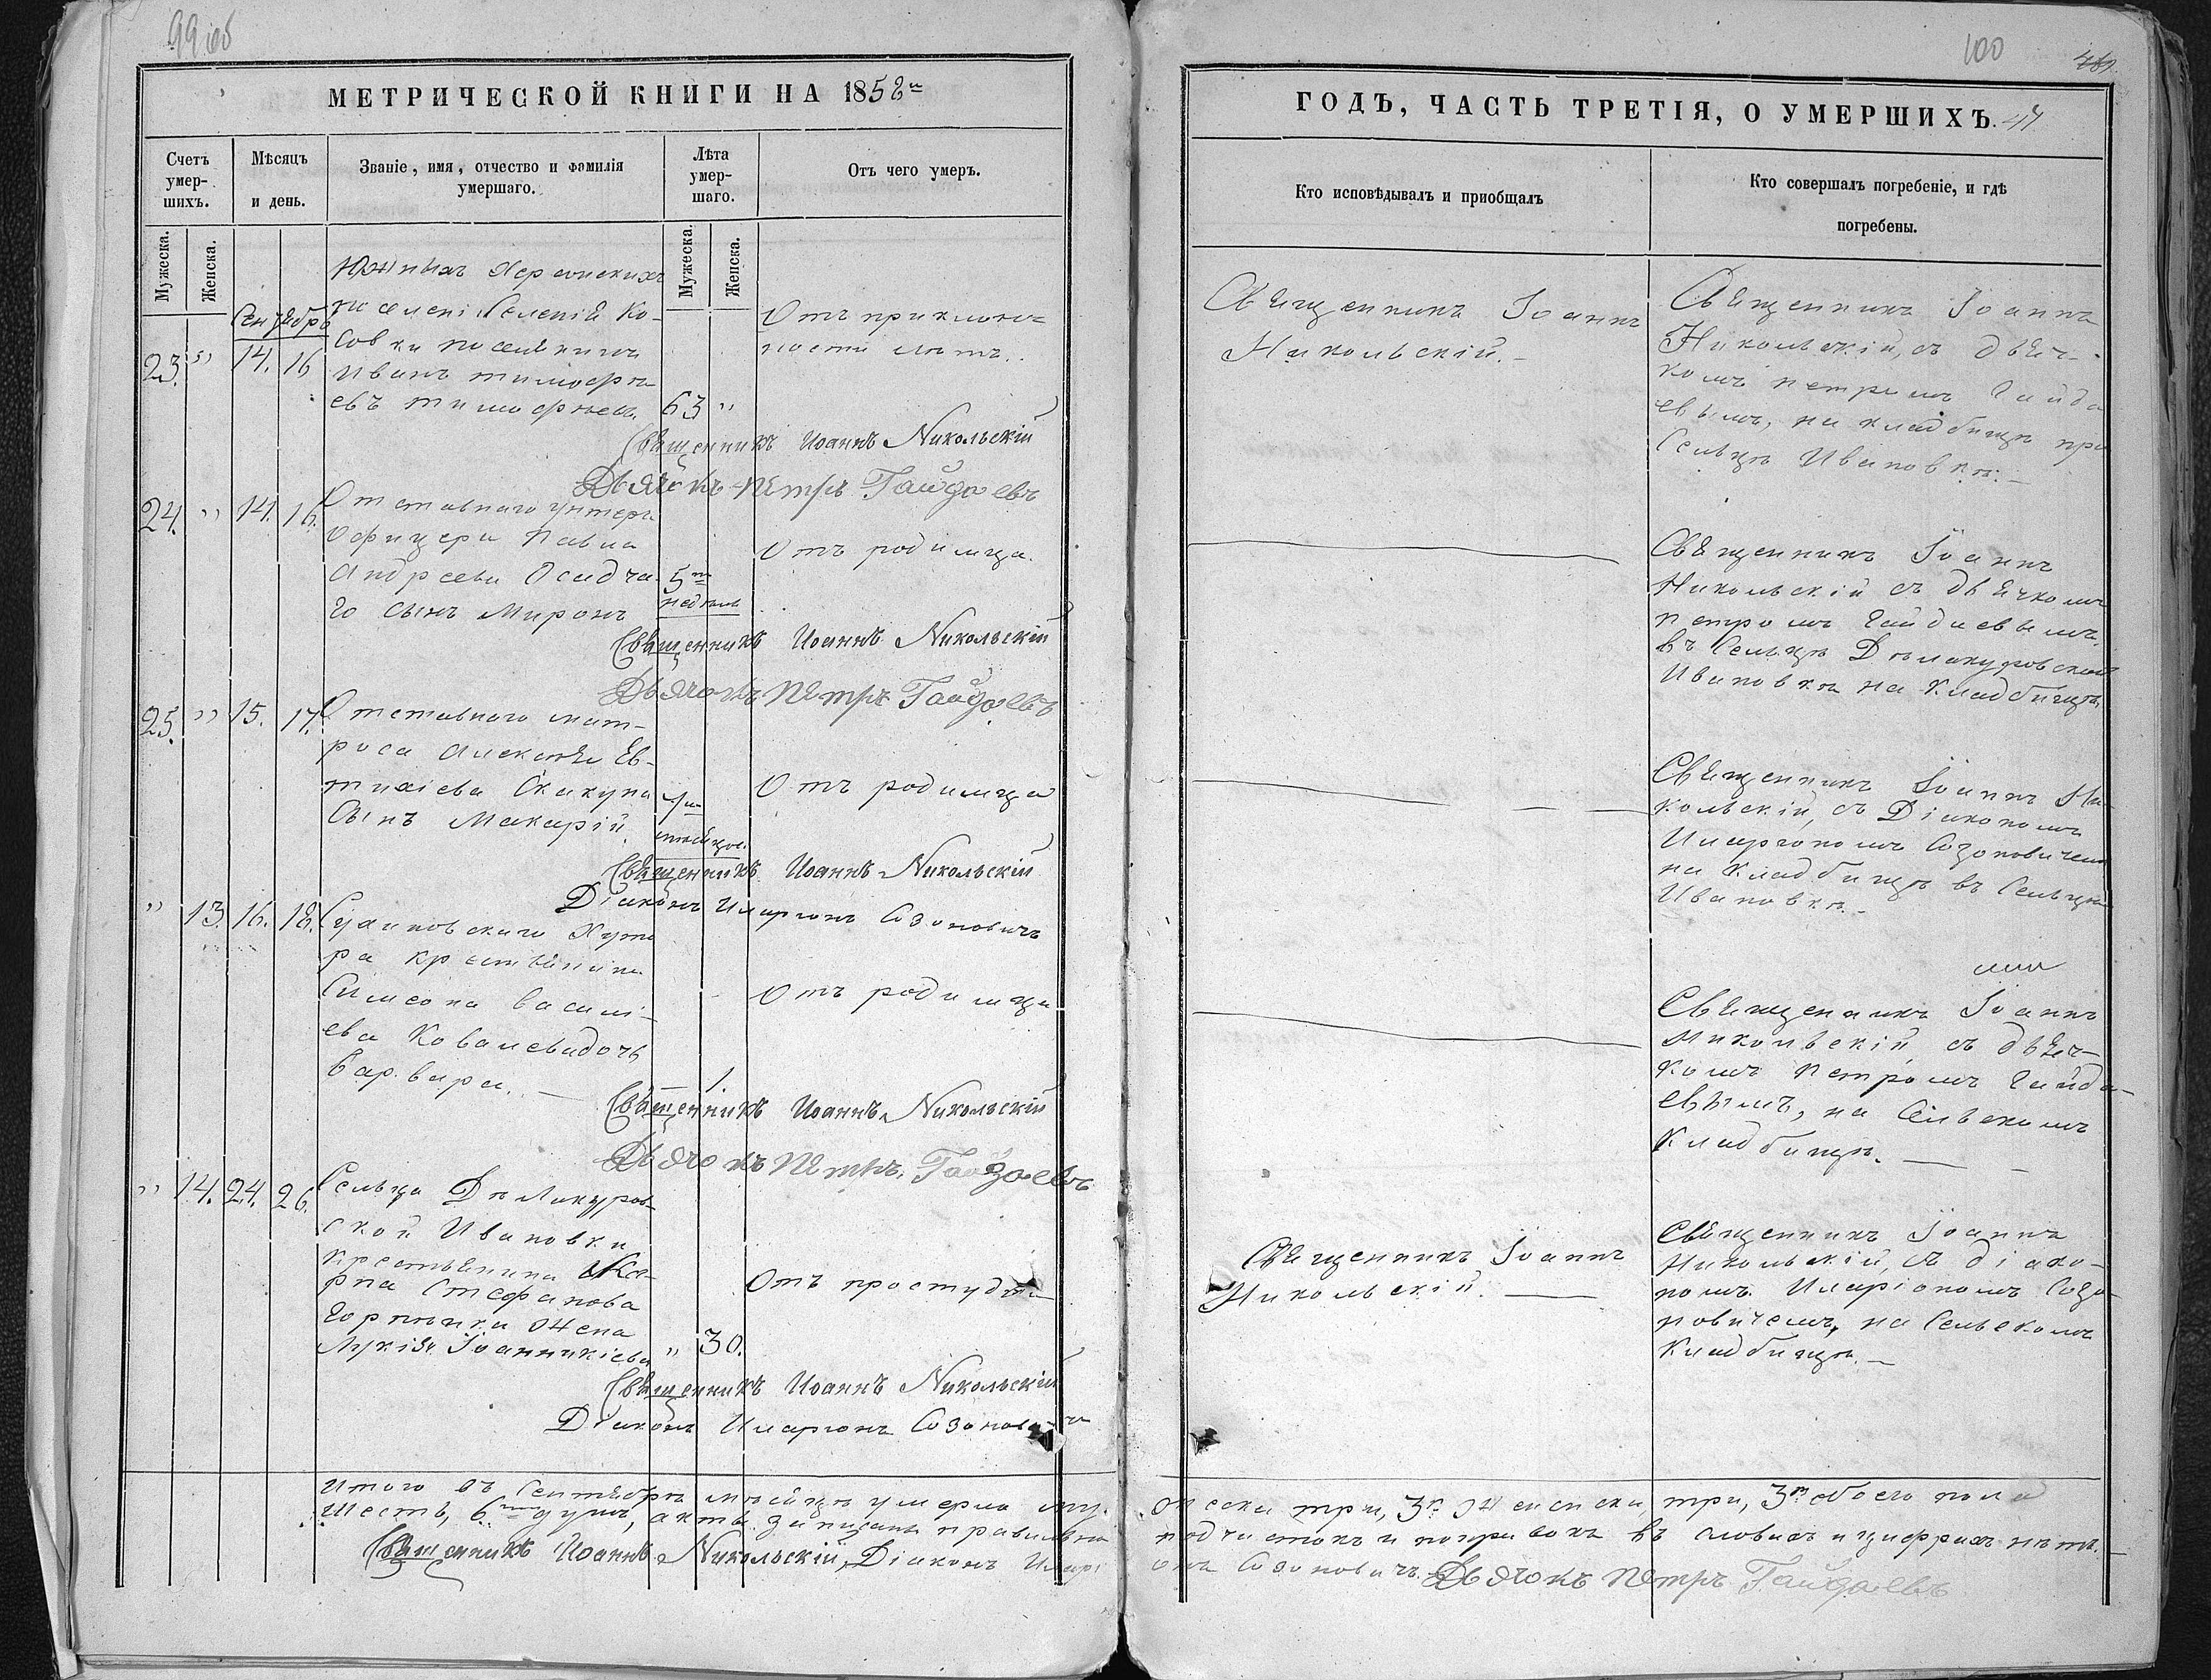 99 об
МЕТРИЧЕСКОЙ КНИГИ НА 1852й
Счетъ умер-шихъ.
Мѣсяцъ и день.
Званіе, имя, отчество и фамилія умершаго.
Лѣта умер-шаго.
Отъ чего умеръ.
Мужеска.
Женска.
Мужеска.
Женска.
Сентябрь
23. " 14. 16
Южныхъ Херсонскихъ
поселеній Селенія Ко-
совки поселянинъ
Иванъ Тимофѣ-
евъ Тимофѣевъ.
63 "
Отъ преклон-
ности лѣтъ.
Священникъ Иоаннъ Никольскій
Дьячокъ Петръ Гайдаевъ
24. " 14. 16.
Отставнаго унтеръ
офицера Павла
Андреева Осадча-
го сынъ Миронъ
5ть
недѣль
Отъ родимца.
Священникъ Иоаннъ Никольскій
Дьячокъ Петръ Гайдаевъ
25. " 15. 17.
Отставнаго мат-
роса Алексѣя Ев-
тихіева Скакуна
Сынъ Макарій.
мѣсяцов.
Отъ родимца
Священникъ Иоаннъ Никольскій
Діаконъ Иларіонъ Созоновичъ
" 13. 16. 18.
хуто
ра крестьянина
Симеона Василі-
ева Ковалева дочь
Варвара. —
1.
Отъ родимца
Священникъ Иоаннъ Никольскій
Дьячокъ Петръ Гайдаевъ
" 14. 24. 26.
Сельца Дѣлакуров-
ской Ивановки
крестьянина Ка-
рпа Стефанова
жена
Лукія Іоанникіева
" 30.
Отъ простуды
Священникъ Иоаннъ Никольскій
Діаконъ Иларіонъ Созоновичъ
Итого въ Сентябрѣ мѣсяцѣ умерло му-
шесть, 6ть душъ, акты записаны правильно
Священникъ Иоаннъ Никольскій, Діаконъ Илари
100
ГОДЪ, ЧАСТЬ ТРЕТІЯ, О УМЕРШИХЪ. 47
Кто исповѣдывалъ и пріобщалъ
Кто совершалъ погребеніе, и гдѣ погребены.
Священникъ Іоаннъ
Никольскій. —
Священникъ Іоаннъ
Никольскій, съ дьяч-
комъ Петромъ Гайда
евымъ, на кладбищѣ при
Сельцѣ Ивановкѣ. —
Священникъ Іоаннъ
Никольскій съ дьячкомъ
Петромъ Гайдаевымъ
въ Сельцѣ Дѣлакуровской
Ивановкѣ на кладбищѣ.
Священникъ Іоаннъ Ни-
кольскій, съ Діакономъ
Иларіономъ Созоновичемъ
на кладбищѣ въ Сельцѣ
Ивановкѣ. —
Священникъ Іоаннъ
Никольскій съ дьяч-
комъ Петромъ Гайда-
евымъ, на Сельскомъ
Кладбищѣ. —
Священникъ Іоаннъ
Никольскій. —
Священникъ Іоаннъ
Никольскій, съ діако-
номъ Иларіономъ Созо-
новичемъ, на Сельскомъ
Кладбищѣ. —
жеска три, 3. Женска три, 3. обоего пола
подчистокъ и поправокъ въ словахъ и цифрахъ нѣтъ. —
онъ Созоновичъ. Дьячокъ Петръ Гайдаевъ